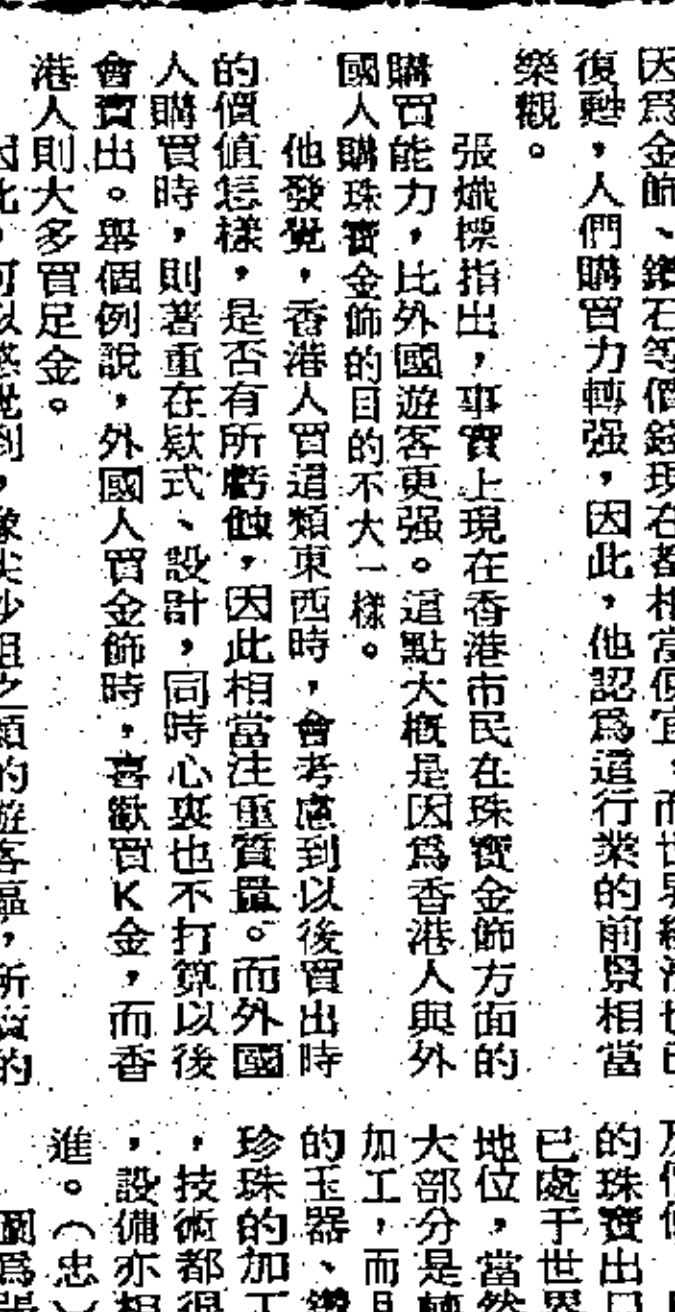 因爲金飾、鑽石等價錢現在都相當便宜，而世界經濟也已
復甦，人們購買力轉强，因此，他認爲這行業的前景相當
樂觀。
張熾標指出，事實上現在香港市民在珠寶金飾方面的
購買能力，比外國遊客更强。這點大概是因爲香港人與外
國人購珠寶金飾的目的不大一樣。
他發覺，香港人買這類東西時，會考慮到以後賣出時
的價值怎樣，是否有所虧蝕，因此相當注重質量。而外國
人購買時，則著重在款式、設計，同時心裏也不打算以後
會賣出。舉個例說，外國人買金飾時，喜歡買K金，而香
港人則大多買足金。
因此，可以感覺到，象尖沙咀之類的遊客區，所賣的
的珠寶出
已處于世界
地位，當然
大部分是轉
加工，而且
的玉器、鑽
珍珠的加工
，技術都很
，設備亦相
進。（忠）
圖爲張